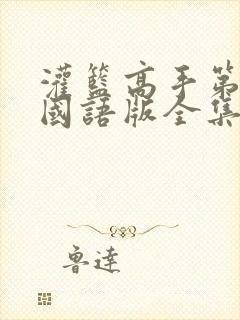 灌籃高手第
國語版全集
魯達